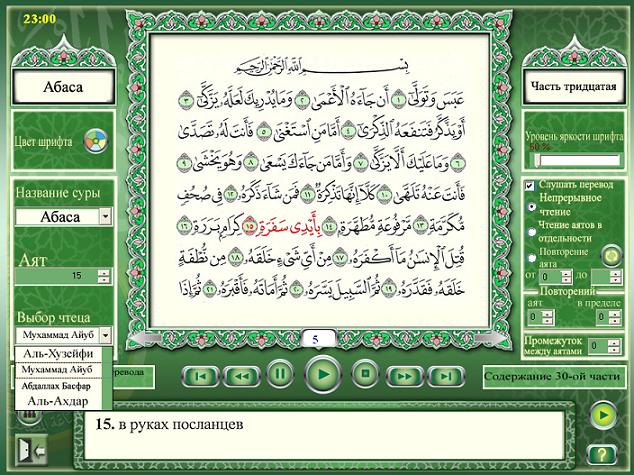 23:00
Абаса
Часть тридцатая
Цвет шрифта
Уровень яркости шрифта
60 %
Название суры
Абаса
Аят
15
Выбор чтеца
Мухаммад Айуб
Аль-Хузейфи
Мухаммад Айуб
Абдаллах Басфар
Аль-Ахдар
بِسْمِ اللَّهِ الرَّحْمَٰنِ الرَّحِيمِ
عَبَسَ وَتَوَلَّىٰٓ ١ أَن جَآءَهُ ٱلْأَعْمَىٰ ٢ وَمَا يُدْرِيكَ لَعَلَّهُۥ يَزَّكَّىٰٓ ٣
أَوْ يَذَّكَّرُ فَتَنفَعَهُ ٱلذِّكْرَىٰٓ ٤ أَمَّا مَنِ ٱسْتَغْنَىٰ ٥ فَأَنتَ لَهُۥ تَصَدَّىٰ
٦ وَمَا عَلَيْكَ أَلَّا يَزَّكَّىٰ ٧ وَأَمَّا مَن جَآءَكَ يَسْعَىٰ ٨ وَهُوَ يَخْشَىٰ ٩
فَأَنتَ عَنْهُ تَلَهَّىٰ ١٠ كَلَّآ إِنَّهَا تَذْكِرَةٌ ١١ فَمَن شَآءَ ذَكَرَهُۥ ١٢ فِى صُحُفٍ
مُّكَرَّمَةٍ ١٣ مَّرْفُوعَةٍ مُّطَهَّرَةٍۭ ١٤ بِأَيْدِى سَفَرَةٍ ١٥ كِرَامٍۭ بَرَرَةٍ ١٦
قُتِلَ ٱلْإِنسَٰنُ مَآ أَكْفَرَهُۥ ١٧ مِنْ أَىِّ شَىْءٍ خَلَقَهُۥ ١٨ مِن نُّطْفَةٍ
خَلَقَهُۥ فَقَدَّرَهُۥ ١٩ ثُمَّ ٱلسَّبِيلَ يَسَّرَهُۥ ٢٠ ثُمَّ أَمَاتَهُۥ فَأَقْبَرَهُۥ ٢١ ثُمَّ إِذَا
5
Слушать перевод
Непрерывное чтение
Чтение аятов в отдельности
Повторение аята
от 0 до 0
Повторений
аят в пределе
0 0
Промежуток между аятами 0
Содержание 30-ой части
15. в руках посланцев
?